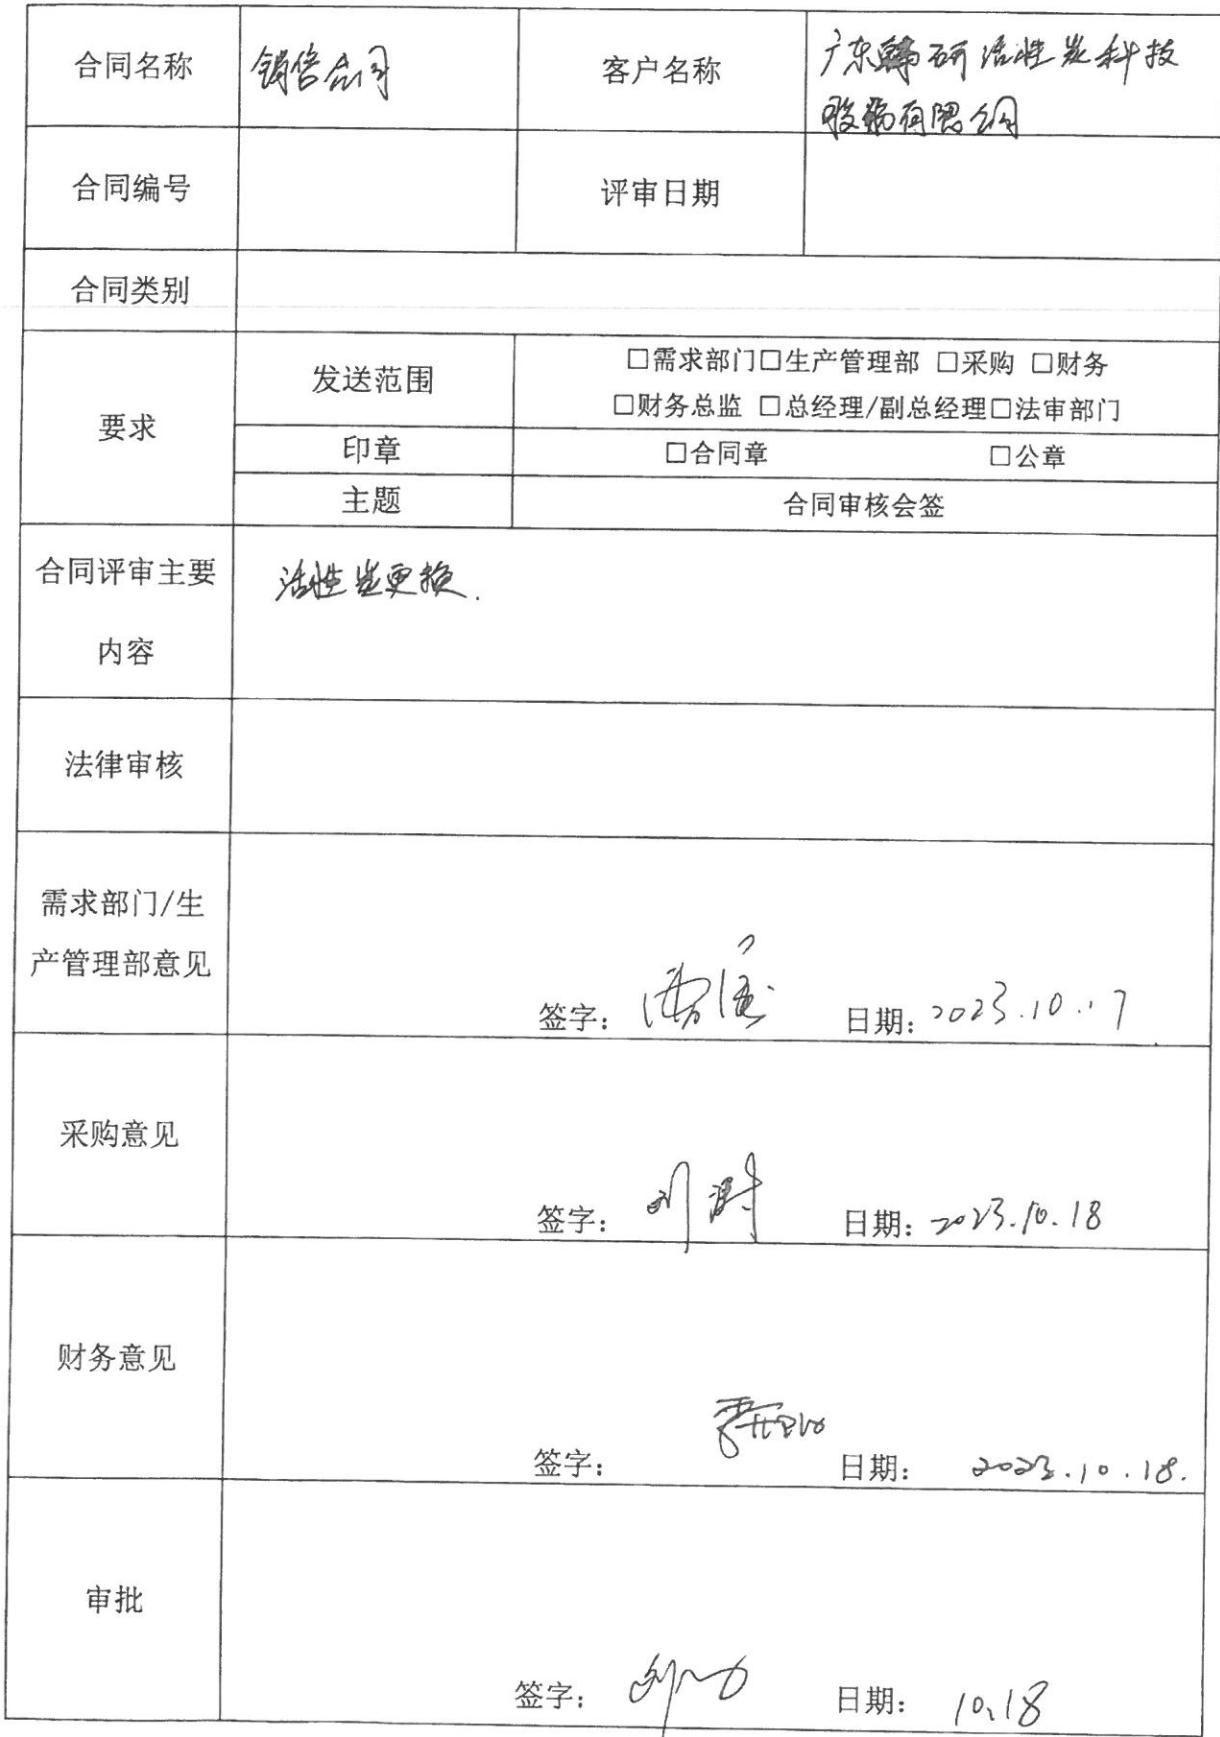 合同名称 销售合同 客户名称 广东韩研活性炭科技
股份有限公司
合同编号 评审日期
合同类别
要求 发送范围 □需求部门□生产管理部 □采购 □财务
□财务总监 □总经理/副总经理□法审部门
印章 □合同章 □公章
主题 合同审核会签
合同评审主要
内容
活性炭更换.
法律审核
需求部门/生
产管理部意见
签字: 日期: 2023.10.17
采购意见
签字: 日期: 2023.10.18
财务意见
签字: 日期: 2023.10.18.
审批
签字: 日期: 10.18